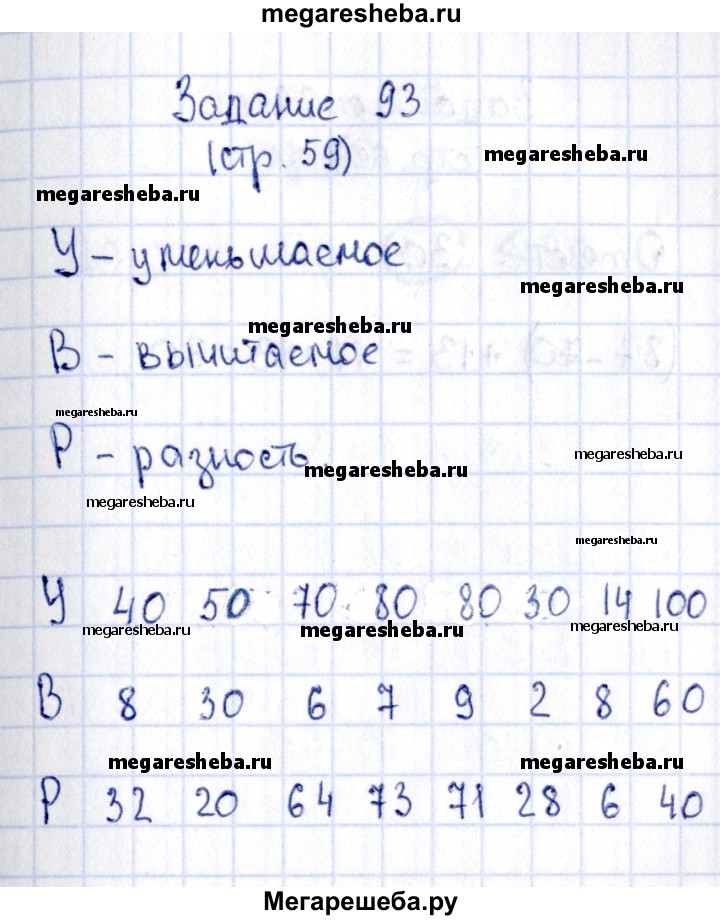 megaresheba.ru
Задание 93
(стр. 59)
megaresheba.ru
megaresheba.ru
У - уменьшаемое
megaresheba.ru
megaresheba.ru
В - вычитаемое
megaresheba.ru
Р - разность
megaresheba.ru
megaresheba.ru
megaresheba.ru
megaresheba.ru
У 40 50 70 80 80 30 14 100
megaresheba.ru megaresheba.ru megaresheba.ru
В 8 30 6 7 9 2 8 60
megaresheba.ru megaresheba.ru
Р 32 20 64 73 71 28 6 40
Мегарешеба.ру